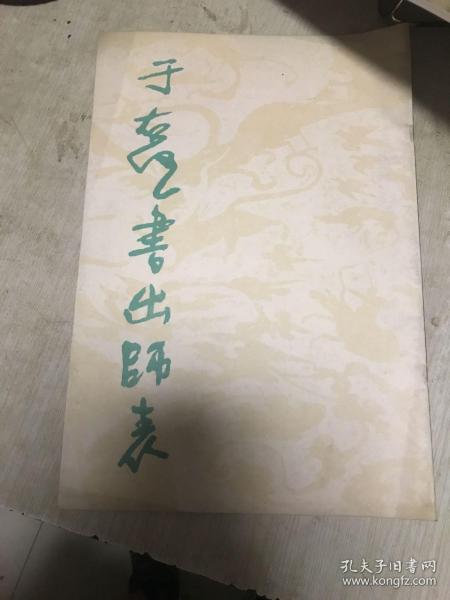 于書出師表
孔夫子旧书网
www.kongfz.com